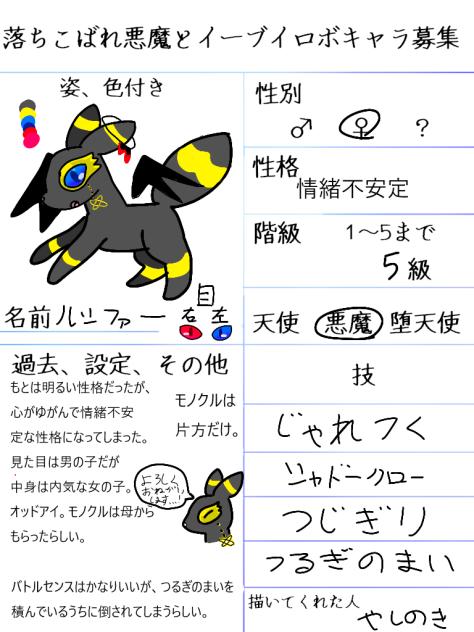 落ちこばれ悪魔とイーブイロボキャラ募集
姿、色付き
性別
♂ ♀ ?
性格
情緒不安定
階級 1〜5まで
5級
名前 ルシファー
目
右 左
天使 悪魔 堕天使
過去、設定、その他
もとは明るい性格だったが、
心がゆがんで情緒不安
定な性格になってしまった。
見た目は男の子だが
中身は内気な女の子。
オッドアイ。モノクルは母から
もらったらしい。
モノクルは
片方だけ。
よろしく
おねがい
します…!
バトルセンスはかなりいいが、つるぎのまいを
積んでいるうちに倒されてしまうらしい。
技
じゃれつく
シャドークロー
つじぎり
つるぎのまい
描いてくれた人
やしのき